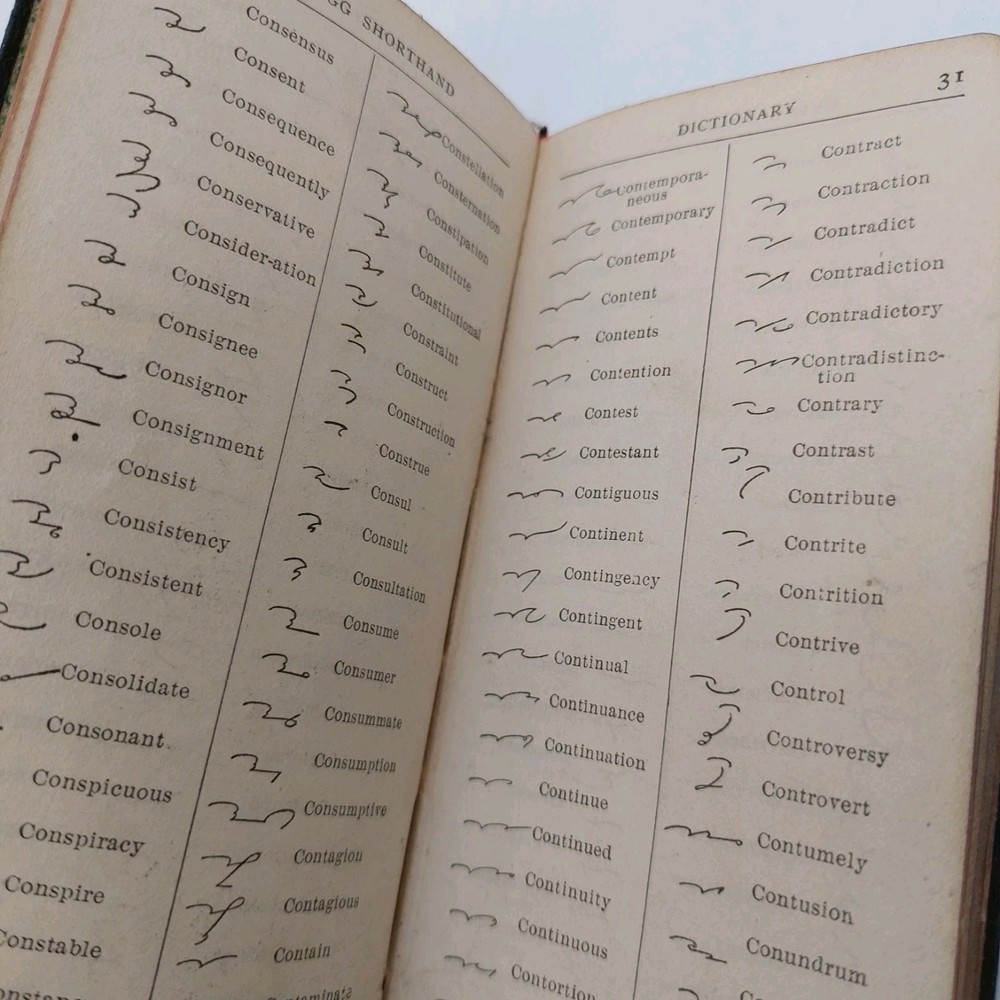 GG SHORTHAND
Consensus
Consent
Consequence
Consequently
Conservative
Consider-ation
Consign
Consignee
Consignor
Consignment
Consist
Consistency
Consistent
Console
Consolidate
Consonant
Conspicuous
Conspiracy
Conspire
Constable
Constellation
Consternation
Constipation
Constitute
Constitutional
Constraint
Construct
Construction
Construe
Consul
Consult
Consultation
Consume
Consumer
Consummate
Consumption
Consumptive
Contagion
Contagious
Contain
DICTIONARY
31
Contempora-
neous
Contemporary
Contempt
Content
Contents
Contention
Contest
Contestant
Contiguous
Continent
Contingency
Contingent
Continual
Continuance
Continuation
Continue
Continued
Continuity
Continuous
Contortion
Contract
Contraction
Contradict
Contradiction
Contradictory
Contradistinc-
tion
Contrary
Contrast
Contribute
Contrite
Contrition
Contrive
Control
Controversy
Controvert
Contumely
Contusion
Conundrum